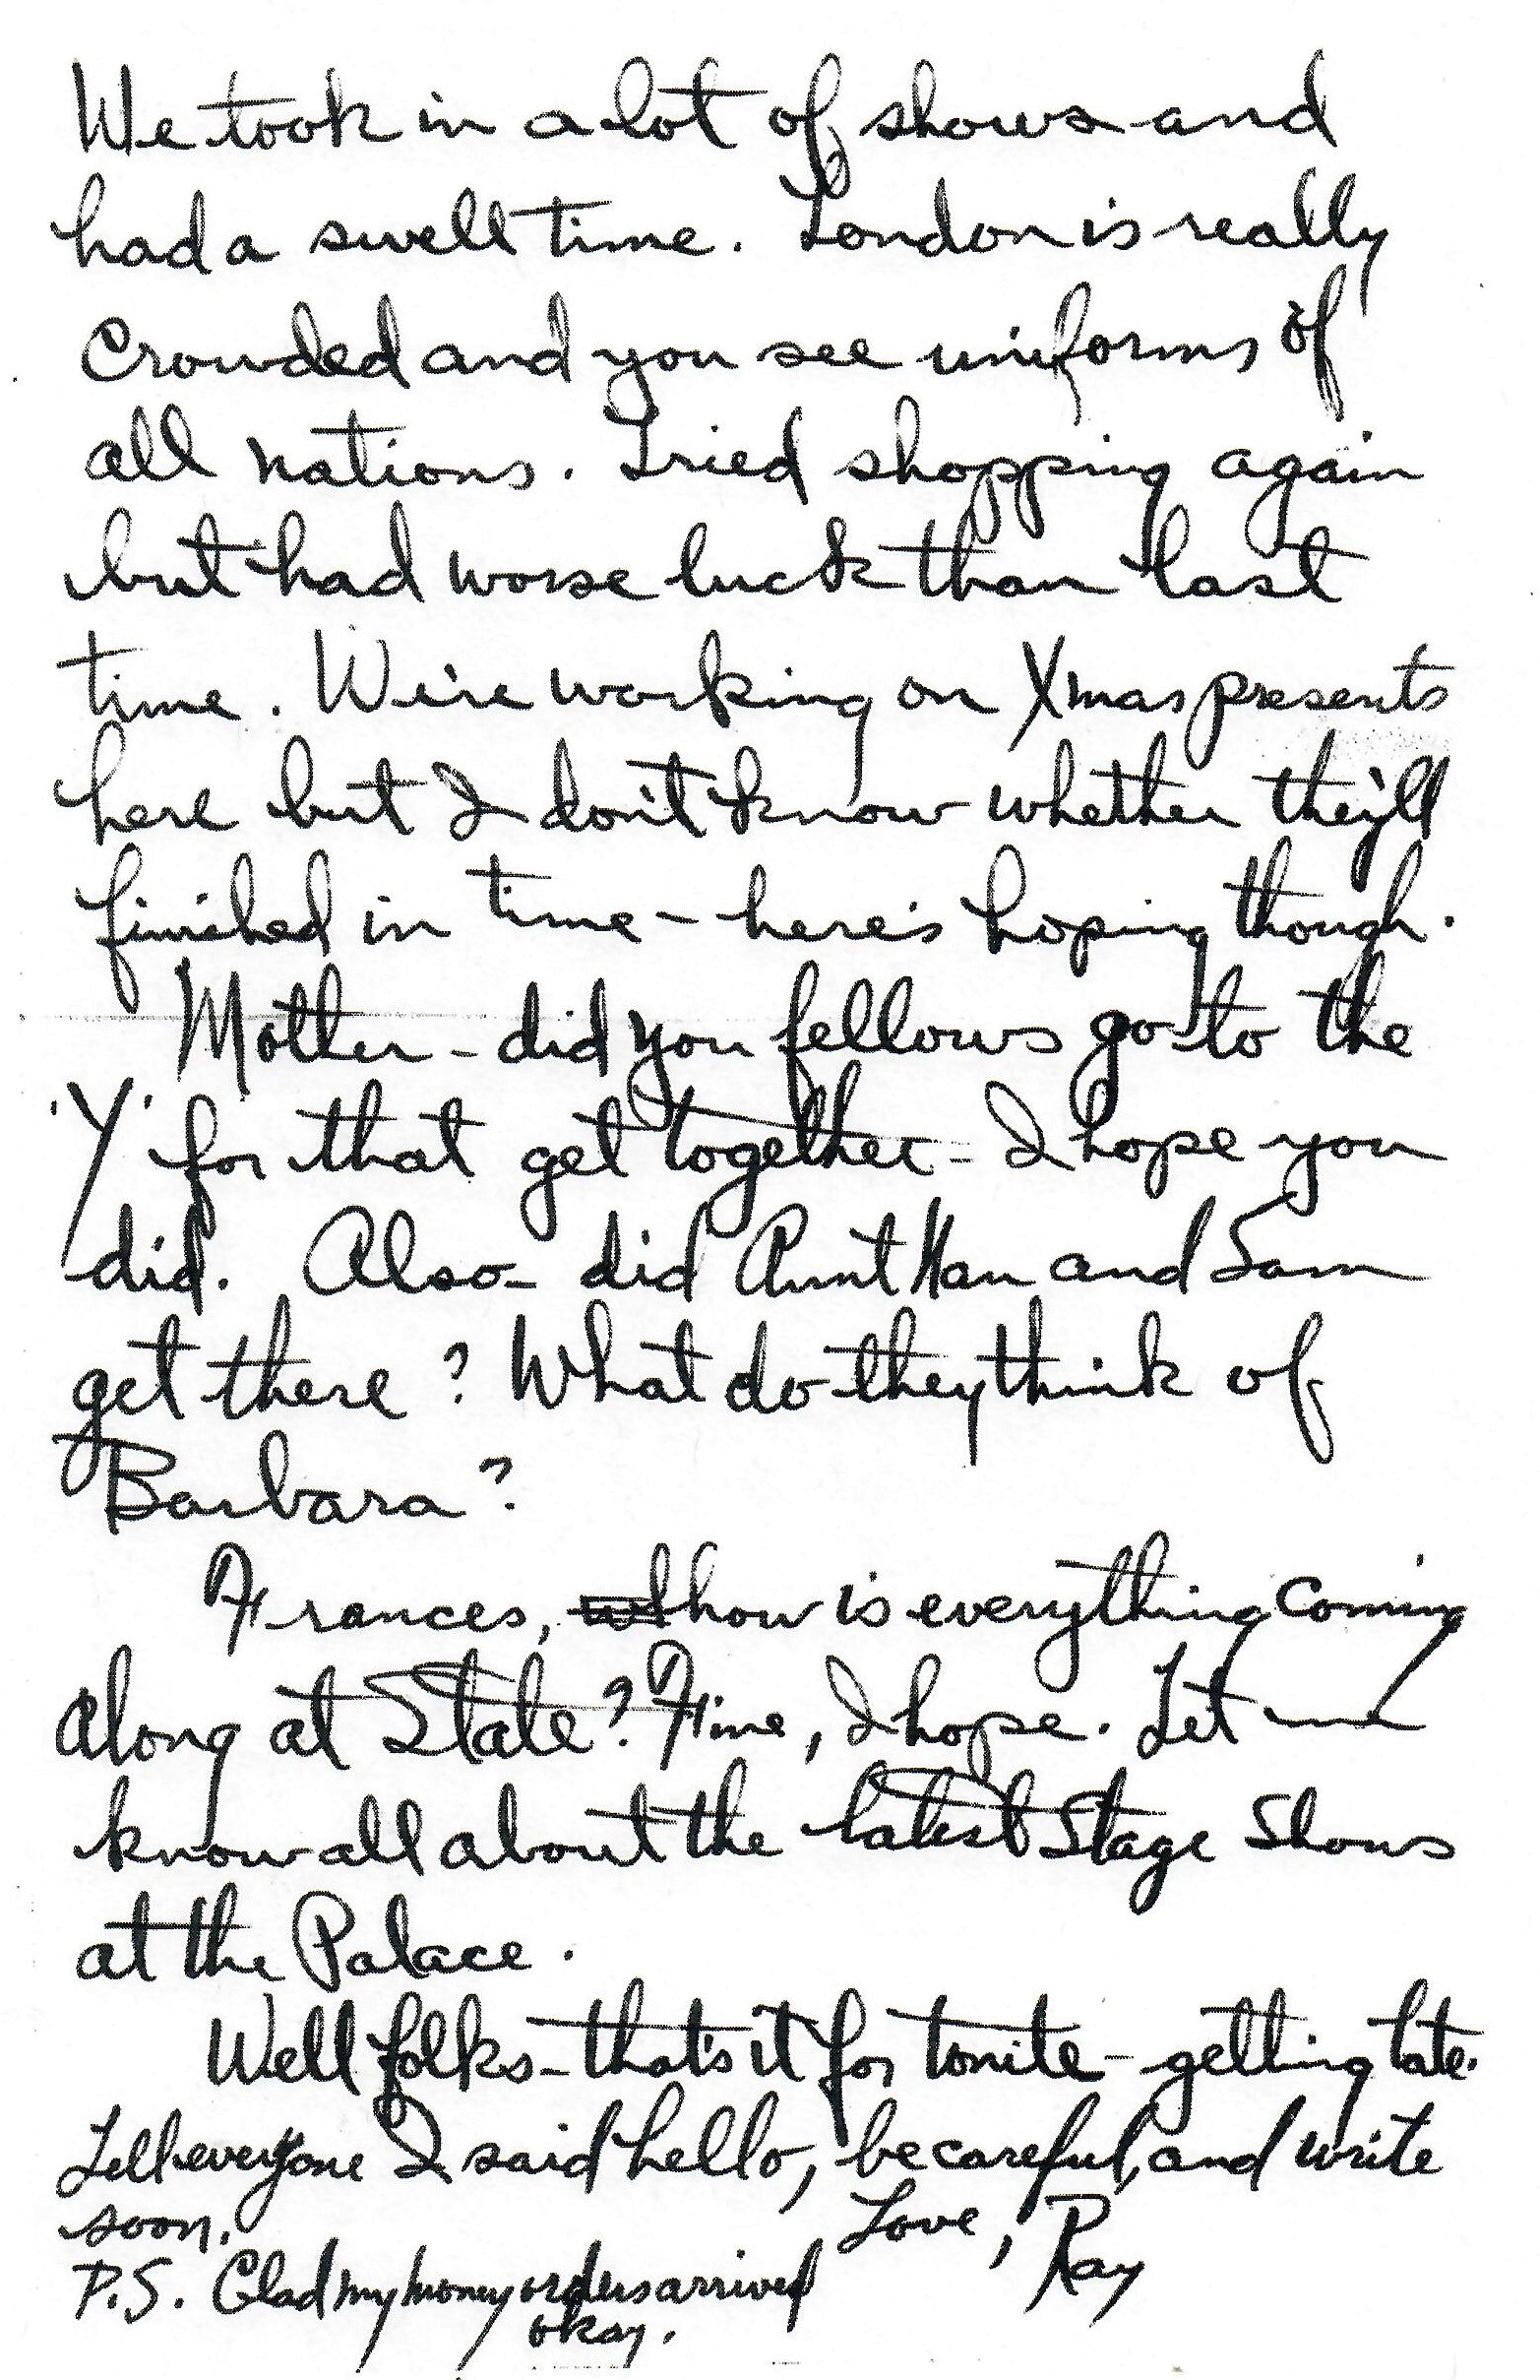 We took in a lot of shows and
had a swell time. London is really
Crowded and you see uniforms of
all nations. Tried shopping again
but had worse luck than last
time. We're working on Xmas presents
here but I don't know whether they'll
finished in time – here's hoping though.
Mother – did you fellows go to the
'Y' for that get together – I hope you
did. Also – did Aunt Han and Sam
get there? What do they think of
Barbara?
Frances, how is everything coming
along at State? Fine, I hope. Let me
know all about the latest Stage Shows
at the Palace.
Well folks – that's it for tonite – getting late.
Tell everyone I said hello, be careful, and write
soon.
Love, Ray
P.S. Glad my money orders arrived
okay.